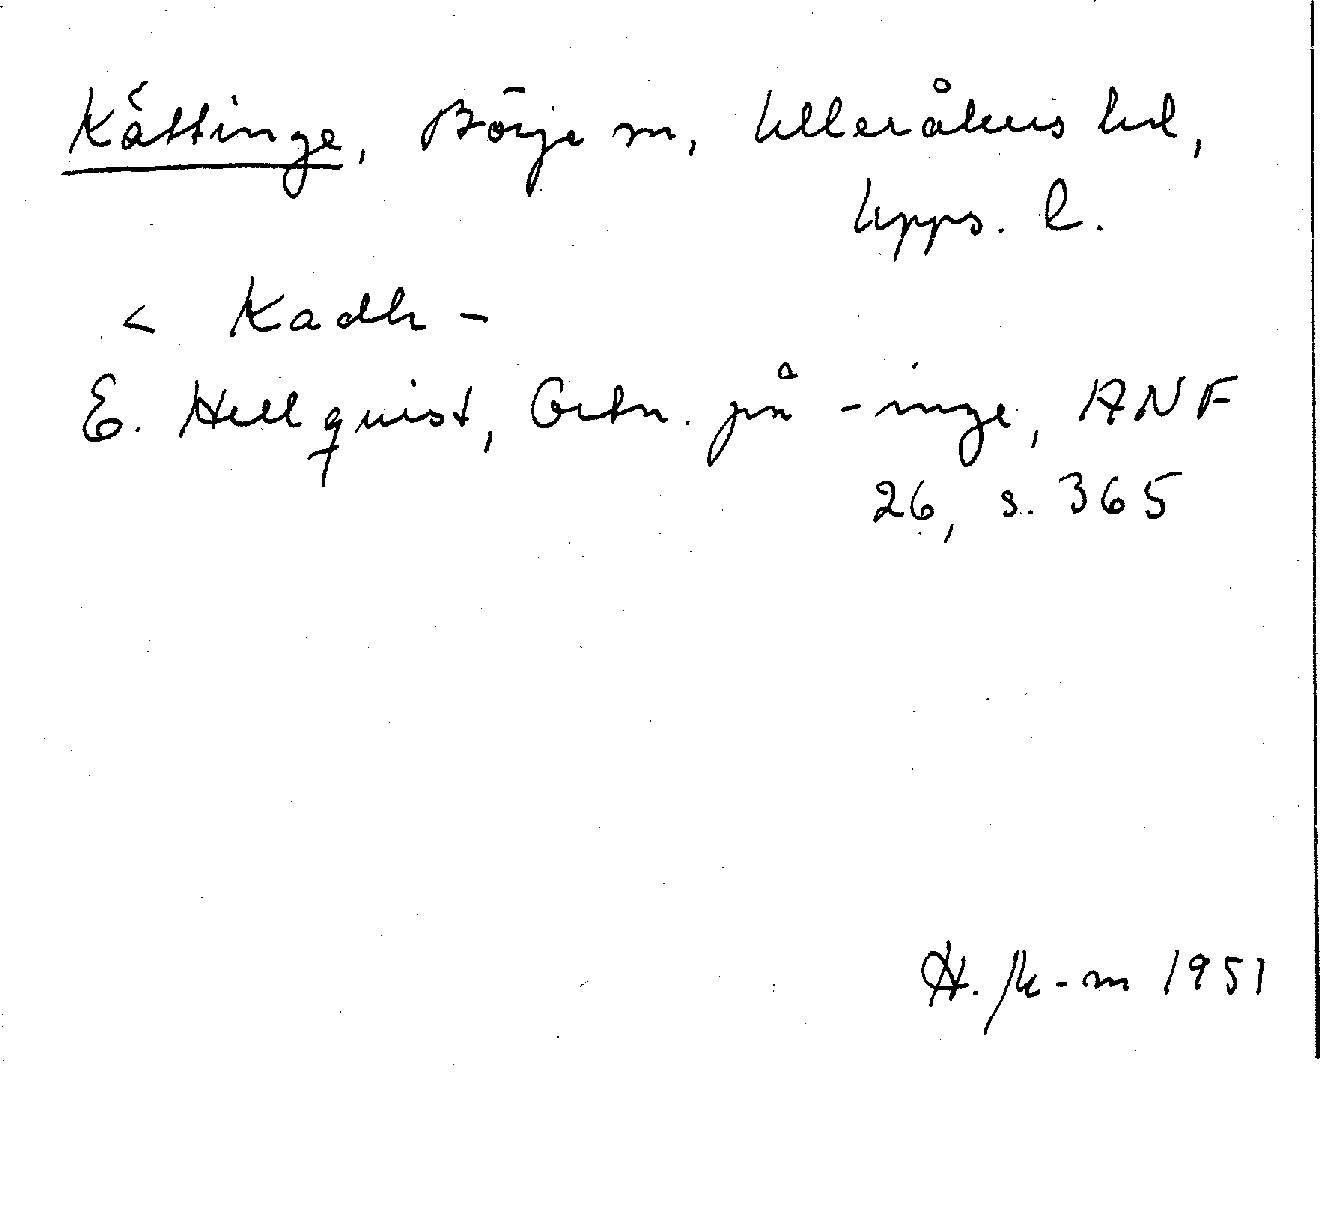 Kättinge, Börje sn, Ulleråkers hd,
Upps. l.
< Kadh -
E. Hellquist, Ortn. på -inge, ANF
26, s. 365
H. 1951